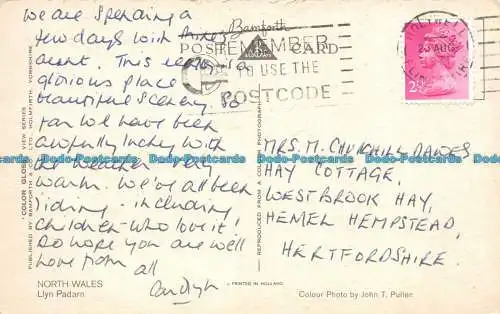 We are spending a
few days with
aunt. This really is a
glorious place
beautiful scenery. So
far we have been
awfully lucky with
the weather - very
warm. We've all been
riding - including
children - who love it!
Do hope you are well
love from all
Bamforth
POST CARD
REMEMBER
TO USE THE
POSTCODE
23 AUG
2½
MRS. M. CHURCHILL DAWES
HAY COTTAGE,
WESTBROOK HAY,
HEMEL HEMPSTEAD,
HERTFORDSHIRE.
'COLOR GLOSS' VIEW SERIES
PUBLISHED BY BAMFORTH & CO. LTD., HOLMFIRTH, YORKSHIRE
REPRODUCED FROM A COLOUR PHOTOGRAPH
NORTH WALES
Llyn Padarn
PRINTED IN HOLLAND
Colour Photo by John T. Puller.
Postcards-Docards